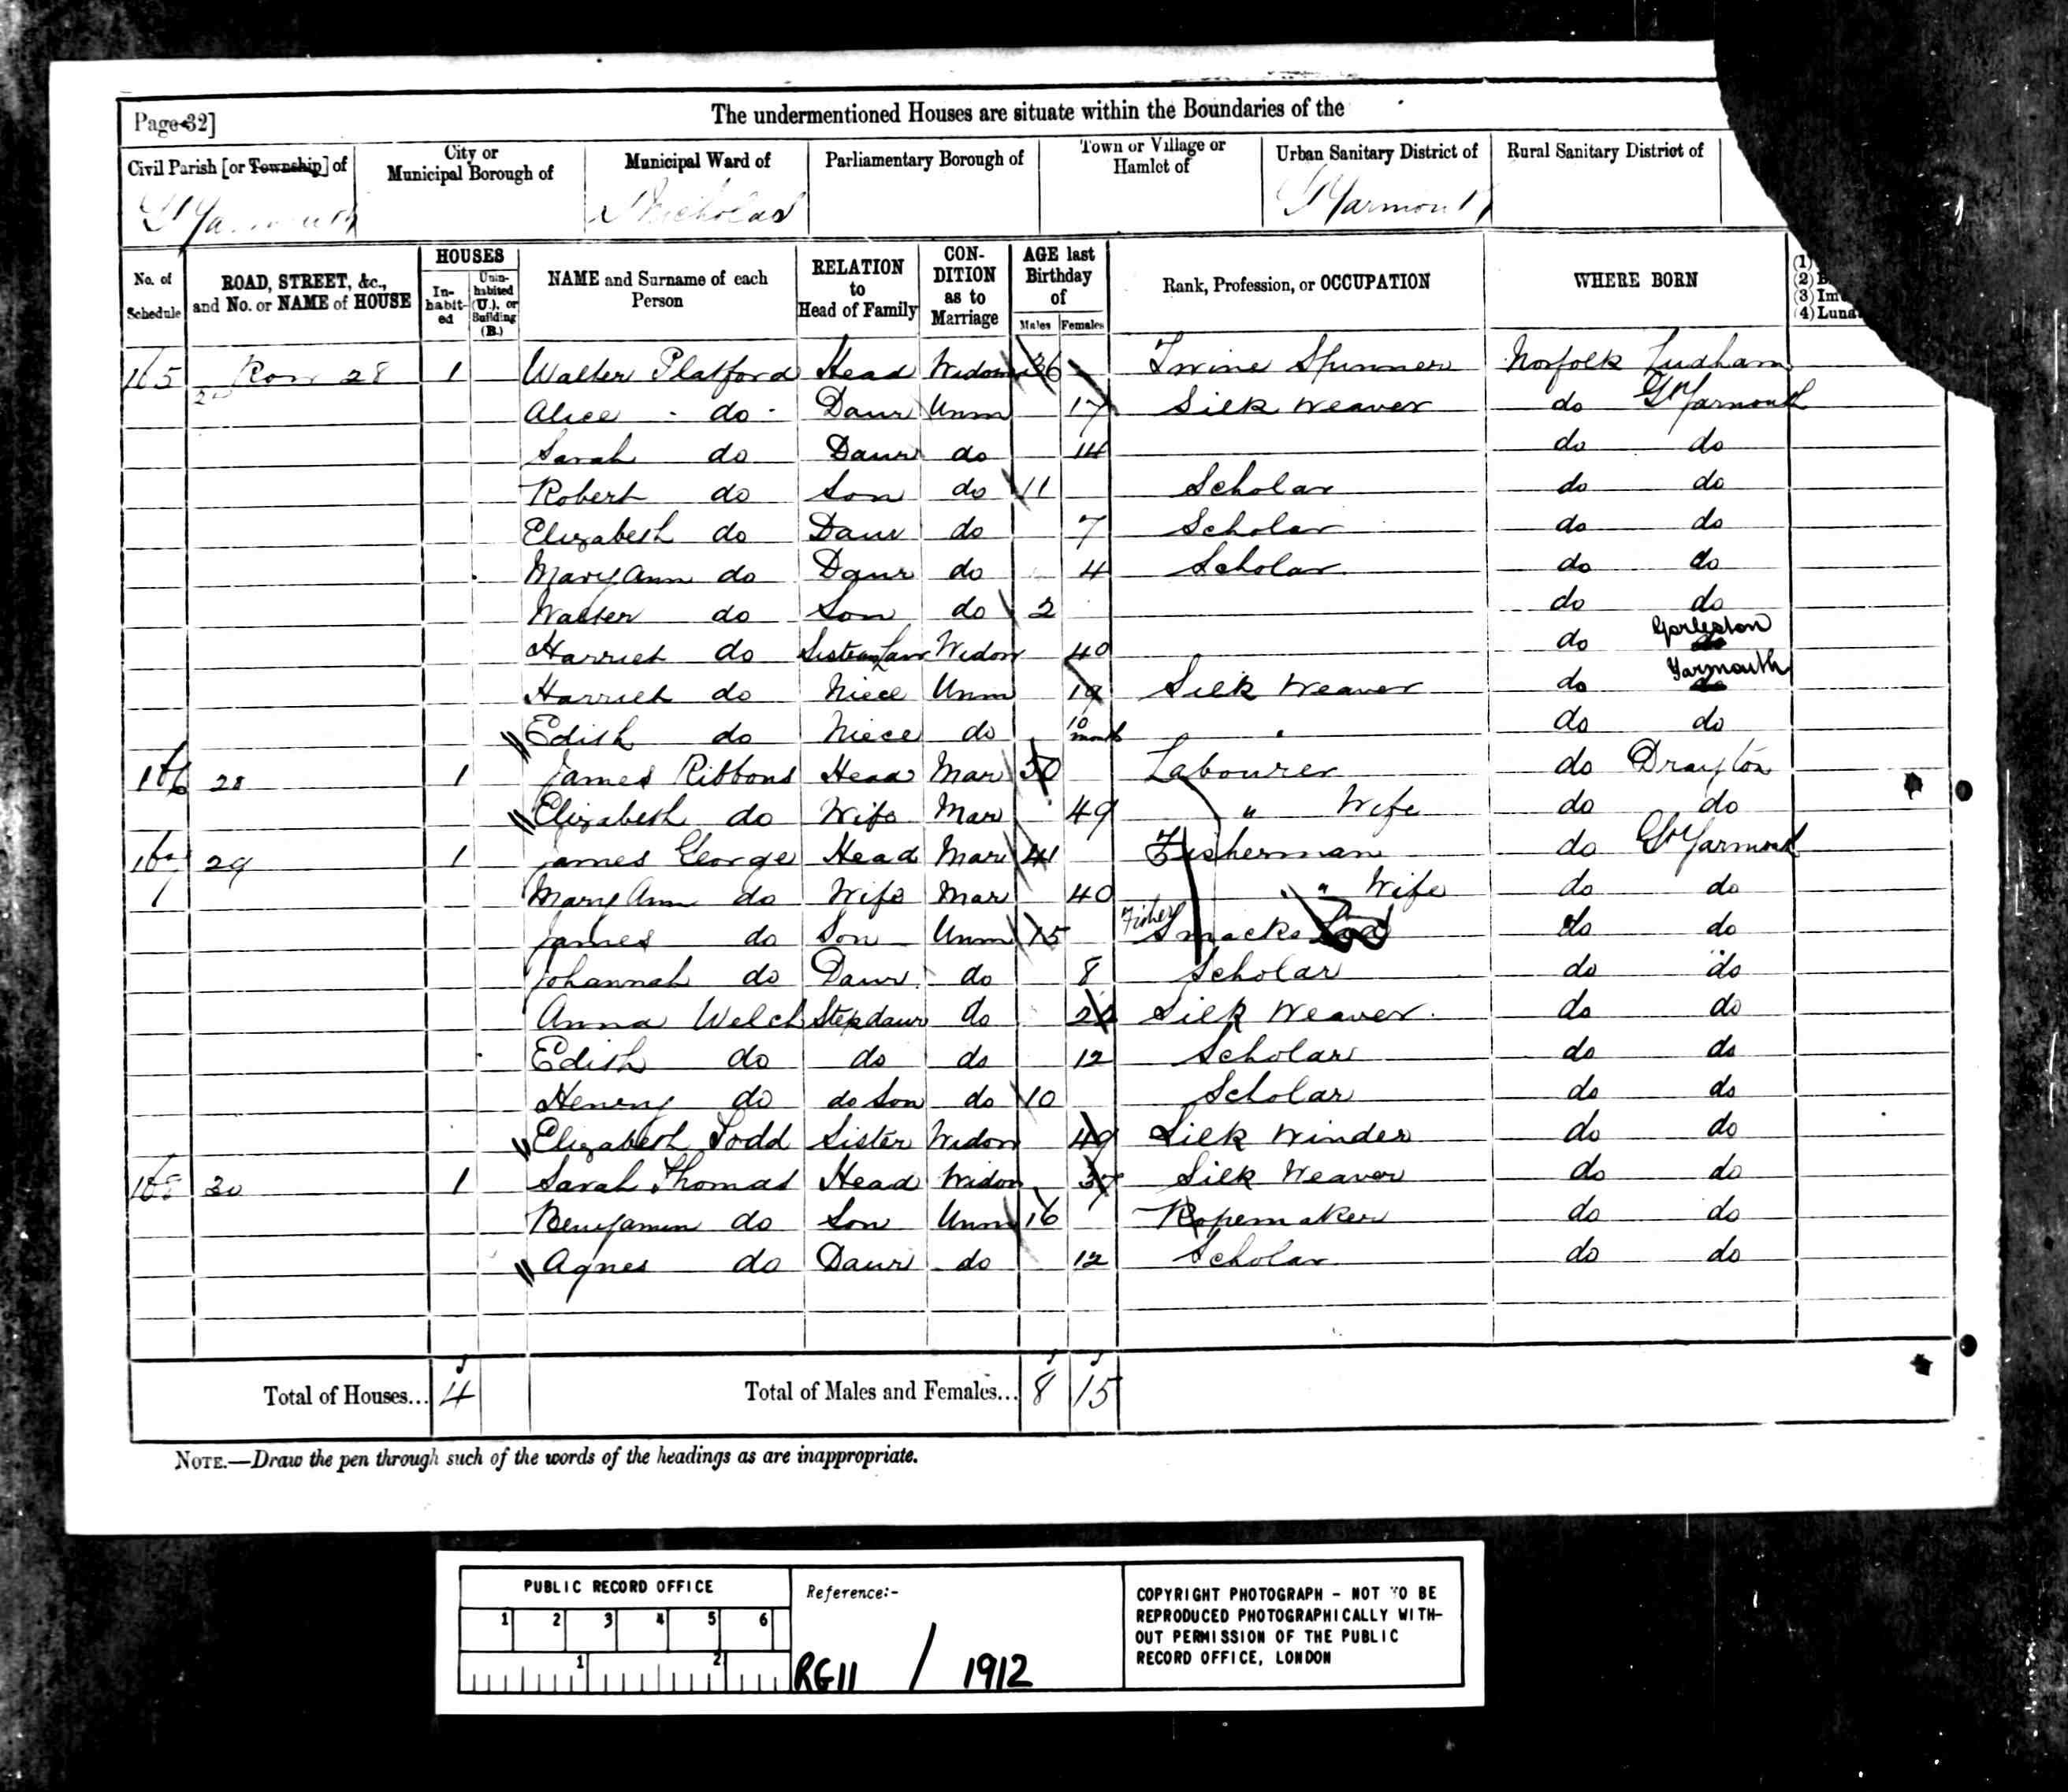 The undermentioned Houses are situate within the Boundaries of the
Page 32]
Civil Parish [or Township] of
City or Municipal Borough of
Municipal Ward of
Parliamentary Borough of
Town or Village or Hamlet of
Urban Sanitary District of
Rural Sanitary District of
Gt Yarmouth
St Nicholas
Gt Yarmouth
No. of Schedule
ROAD, STREET, &c., and No. or NAME of HOUSE
HOUSES
In-habit-ed
Unin-habited (U.), or Building (B.)
NAME and Surname of each Person
RELATION to Head of Family
CON-DITION as to Marriage
AGE last Birthday of
Males
Females
Rank, Profession, or OCCUPATION
WHERE BORN
(1)
(2)
(3) Im
(4) Luna
165 Row 28 1 Walter Platford Head Widow 36 Twine Spinner Norfolk Ludham
Alice do Daur Unm 17 Silk Weaver do Gt Yarmouth
Sarah do Daur do 14 do do
Robert do Son do 11 Scholar do do
Elizabeth do Daur do 7 Scholar do do
Mary Ann do Daur do 4 Scholar do do
Walter do Son do 2 do do
Harriet do Sister in Law Widow 40 do Gorleston
Harriet do Niece Unm 19 Silk Weaver do Yarmouth
Edith do Niece do 10 month do do
166 28 1 James Ribbons Head Mar 50 Labourer do Drayton
Elizabeth do Wife Mar 49 " Wife do do
167 29 1 James George Head Mar 41 Fisherman do Gt Yarmouth
Mary Ann do Wife Mar 40 " Wife do do
James do Son Unm 15 Fishey Smacks Lad do do
Johannah do Daur do 8 Scholar do do
Anna Welch Stepdaur do Silk Weaver do do
Edith do do do 12 Scholar do do
Henry do do Son do 10 Scholar do do
Elizabeth Todd Sister Widow 49 Silk Winder do do
168 30 1 Sarah Thomas Head Widow 37 Silk Weaver do do
Benjamin do Son Unm 16 Ropemaker do do
Agnes do Daur do 12 Scholar do do
Total of Houses... 4 Total of Males and Females... 8 15
NOTE.—Draw the pen through such of the words of the headings as are inappropriate.
PUBLIC RECORD OFFICE
1 2 3 4 5 6
1 2
Reference:-
RG11 / 1912
COPYRIGHT PHOTOGRAPH - NOT TO BE
REPRODUCED PHOTOGRAPHICALLY WITH-
OUT PERMISSION OF THE PUBLIC
RECORD OFFICE, LONDON